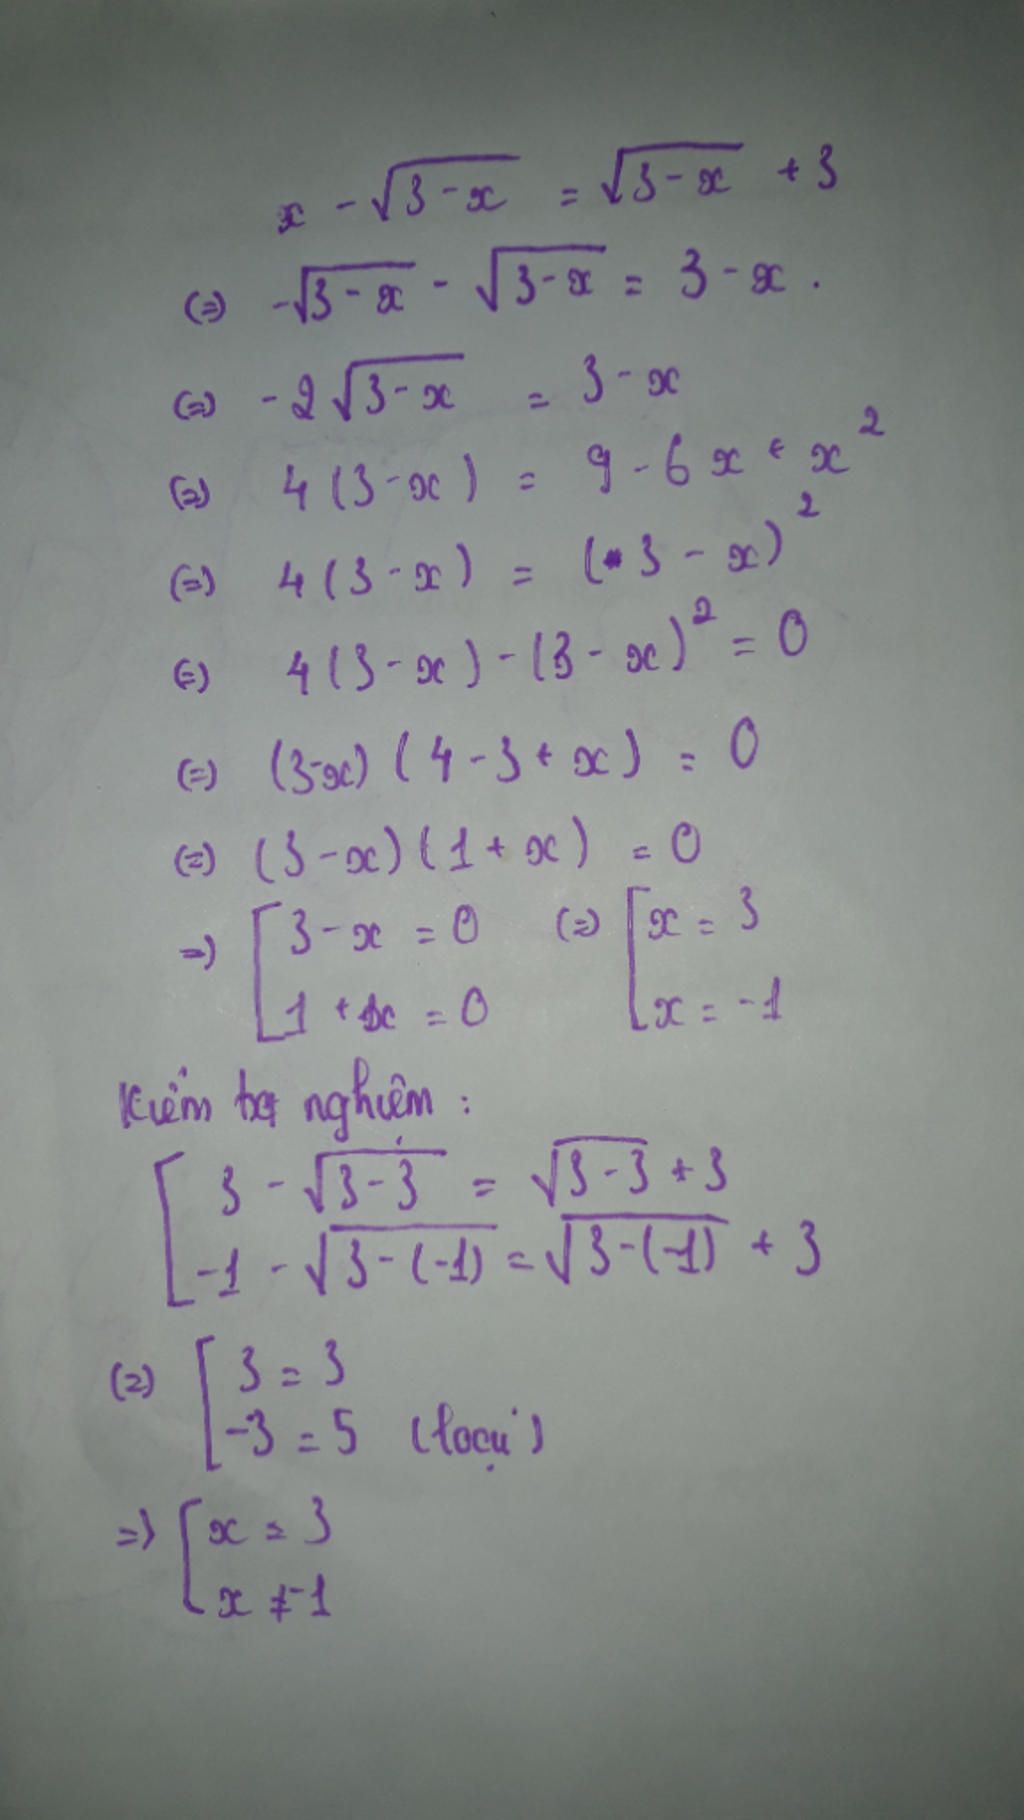 x - √(3-x) = √(3-x) + 3
(=) -√(3-x) - √(3-x) = 3-x .
(=) -2√(3-x) = 3-x
(=) 4(3-x) = 9-6x+x²
(=) 4(3-x) = (3-x)²
(=) 4(3-x)-(3-x)² = 0
(=) (3-x)(4-3+x) = 0
(=) (3-x)(1+x) = 0
=) [3-x = 0 (=) [x = 3
1+x = 0 x = -1
Kiểm tra nghiệm :
[3 - √(3-3) = √(3-3) + 3
-1 - √(3-(-1)) = √(3-(-1)) + 3
(=) [3 = 3
-3 = 5 (loại)
=) [x = 3
x ≠ -1